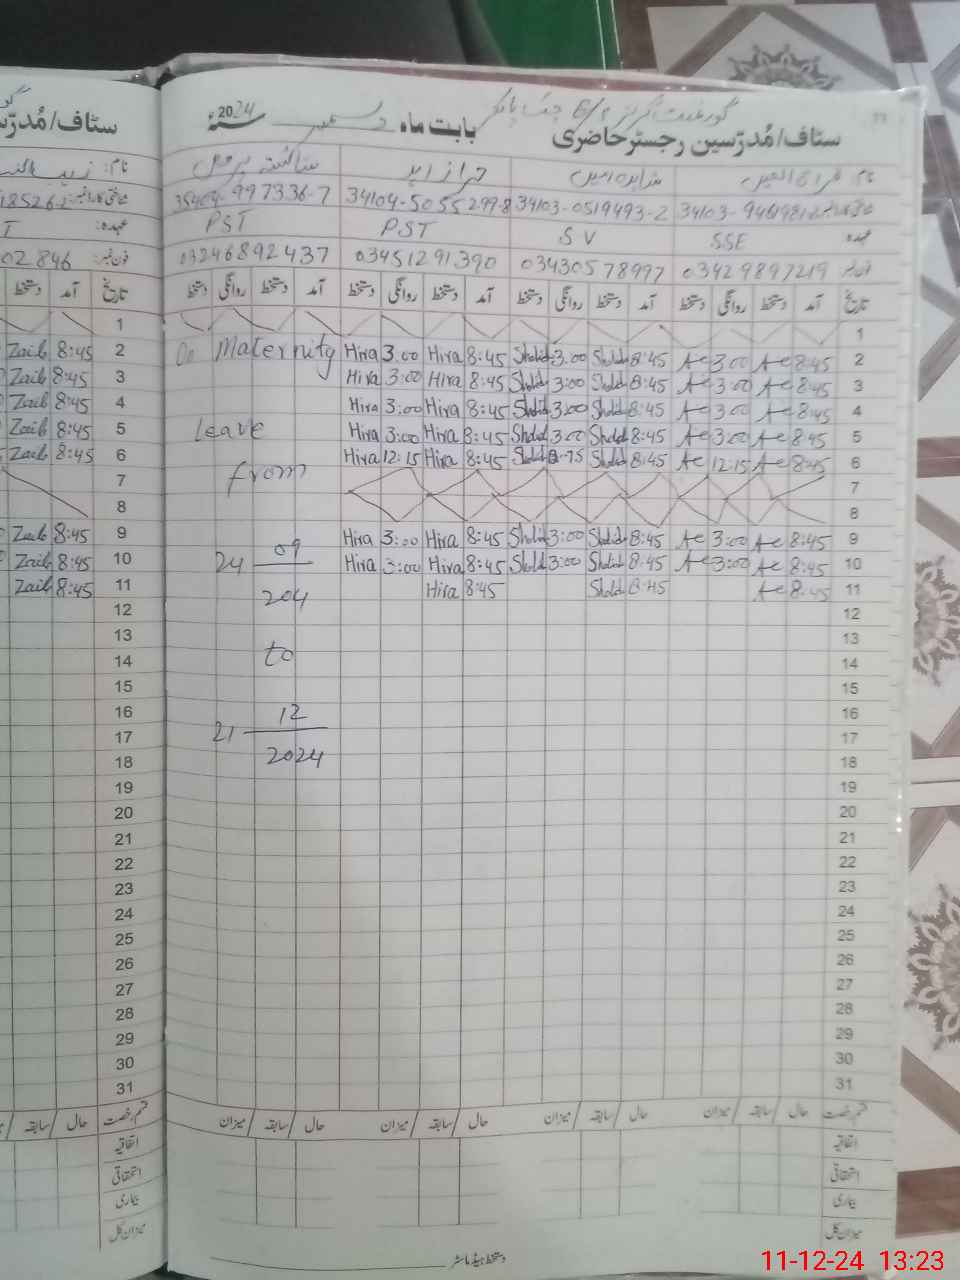 سٹاف/مُدرّسین رجسٹر حاضری بابت ماہ دسمبر 2024
نام
35404-997336-7 34104-5055299-8 34103-0519493-2
عہدہ SSE SV PST PST
فون نمبر 03429897219 03430578997 03451291390 03246892437
تاریخ آمد دستخط روانگی دستخط آمد دستخط روانگی دستخط آمد دستخط روانگی دستخط آمد دستخط روانگی دستخط
1
On Maternity Hira 3:00 Hira 8:45 3:00 8:45 Ae 3:00 Ae 8:45 2
Hira 3:00 Hira 8:45 3:00 8:45 Ae 3:00 Ae 8:45 3
Hira 3:00 Hira 8:45 3:00 8:45 Ae 3:00 Ae 8:45 4
Leave Hira 3:00 Hira 8:45 3:00 8:45 Ae 3:00 Ae 8:45 5
Hira 12:15 Hira 8:45 8:45 Ae 12:15 Ae 8:45 6
from 7
8
09 Hira 3:00 Hira 8:45 3:00 8:45 Ae 3:00 Ae 8:45 9
24 Hira 3:00 Hira 8:45 3:00 8:45 Ae 3:00 Ae 8:45 10
204 Hira 8:45 8:45 Ae 8:45 11
12
13
to 14
15
12 16
21 17
2024 18
19
20
21
22
23
24
25
26
27
28
29
30
31
قسم رخصت حال سابقہ میزان حال سابقہ میزان حال سابقہ میزان حال سابقہ میزان
اتفاقیہ
استحقاقی
بیماری
میزان کل
دستخط ہیڈ ماسٹر
سٹاف/مُدرّس
نام:
عہدہ:
فون نمبر: 02846
تاریخ آمد دستخط
1
Zaib 8:45 2
Zaib 8:45 3
Zaib 8:45 4
Zaib 8:45 5
Zaib 8:45 6
7
8
Zaib 8:45 9
Zaib 8:45 10
Zaib 8:45 11
12
13
14
15
16
17
18
19
20
21
22
23
24
25
26
27
28
29
30
31
قسم رخصت حال سابقہ
اتفاقیہ
استحقاقی
بیماری
میزان کل
11-12-24 13:23